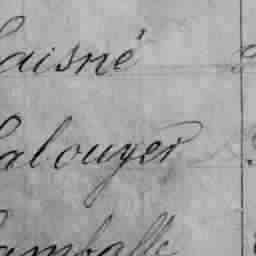 Laisné
Lalouyer
Lamballe